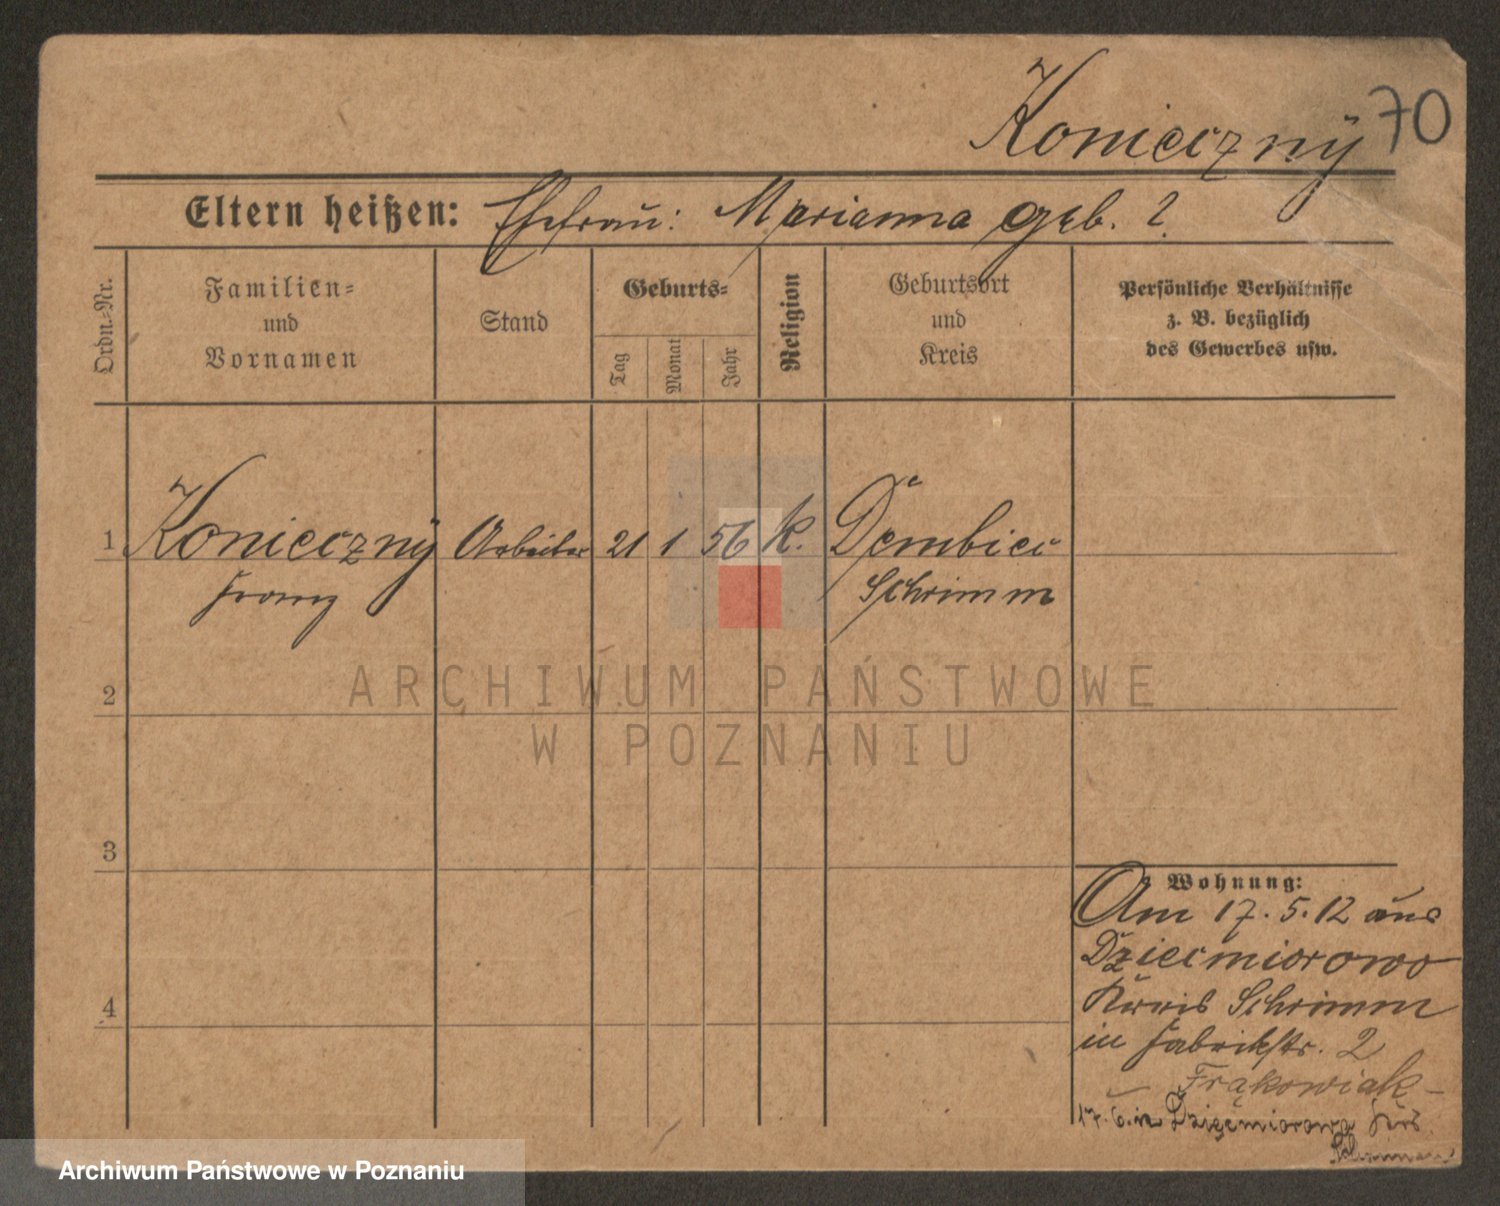 Konieczny 70
Eltern heißen: Ehefrau: Marianna geb. ?
Ordn.-Nr.
Familien-
und
Vornamen
Stand
Geburts-
Tag
Monat
Jahr
Religion
Geburtsort
und
Kreis
Persönliche Verhältnisse
z. B. bezüglich
des Gewerbes usw.
1 Konieczny Arbeiter 21 1 56 k. Dembiec
Franz Schrimm
ARCHIWUM PAŃSTWOWE
W POZNANIU
2
3
4
Wohnung:
Am 17.5.12 aus
Dziecmiorowo
Kreis Schrimm
in Fabrikstr. 2
Frąkowiak
17.6. in Dzięcmiorowo Krs
Archiwum Państwowe w Poznaniu